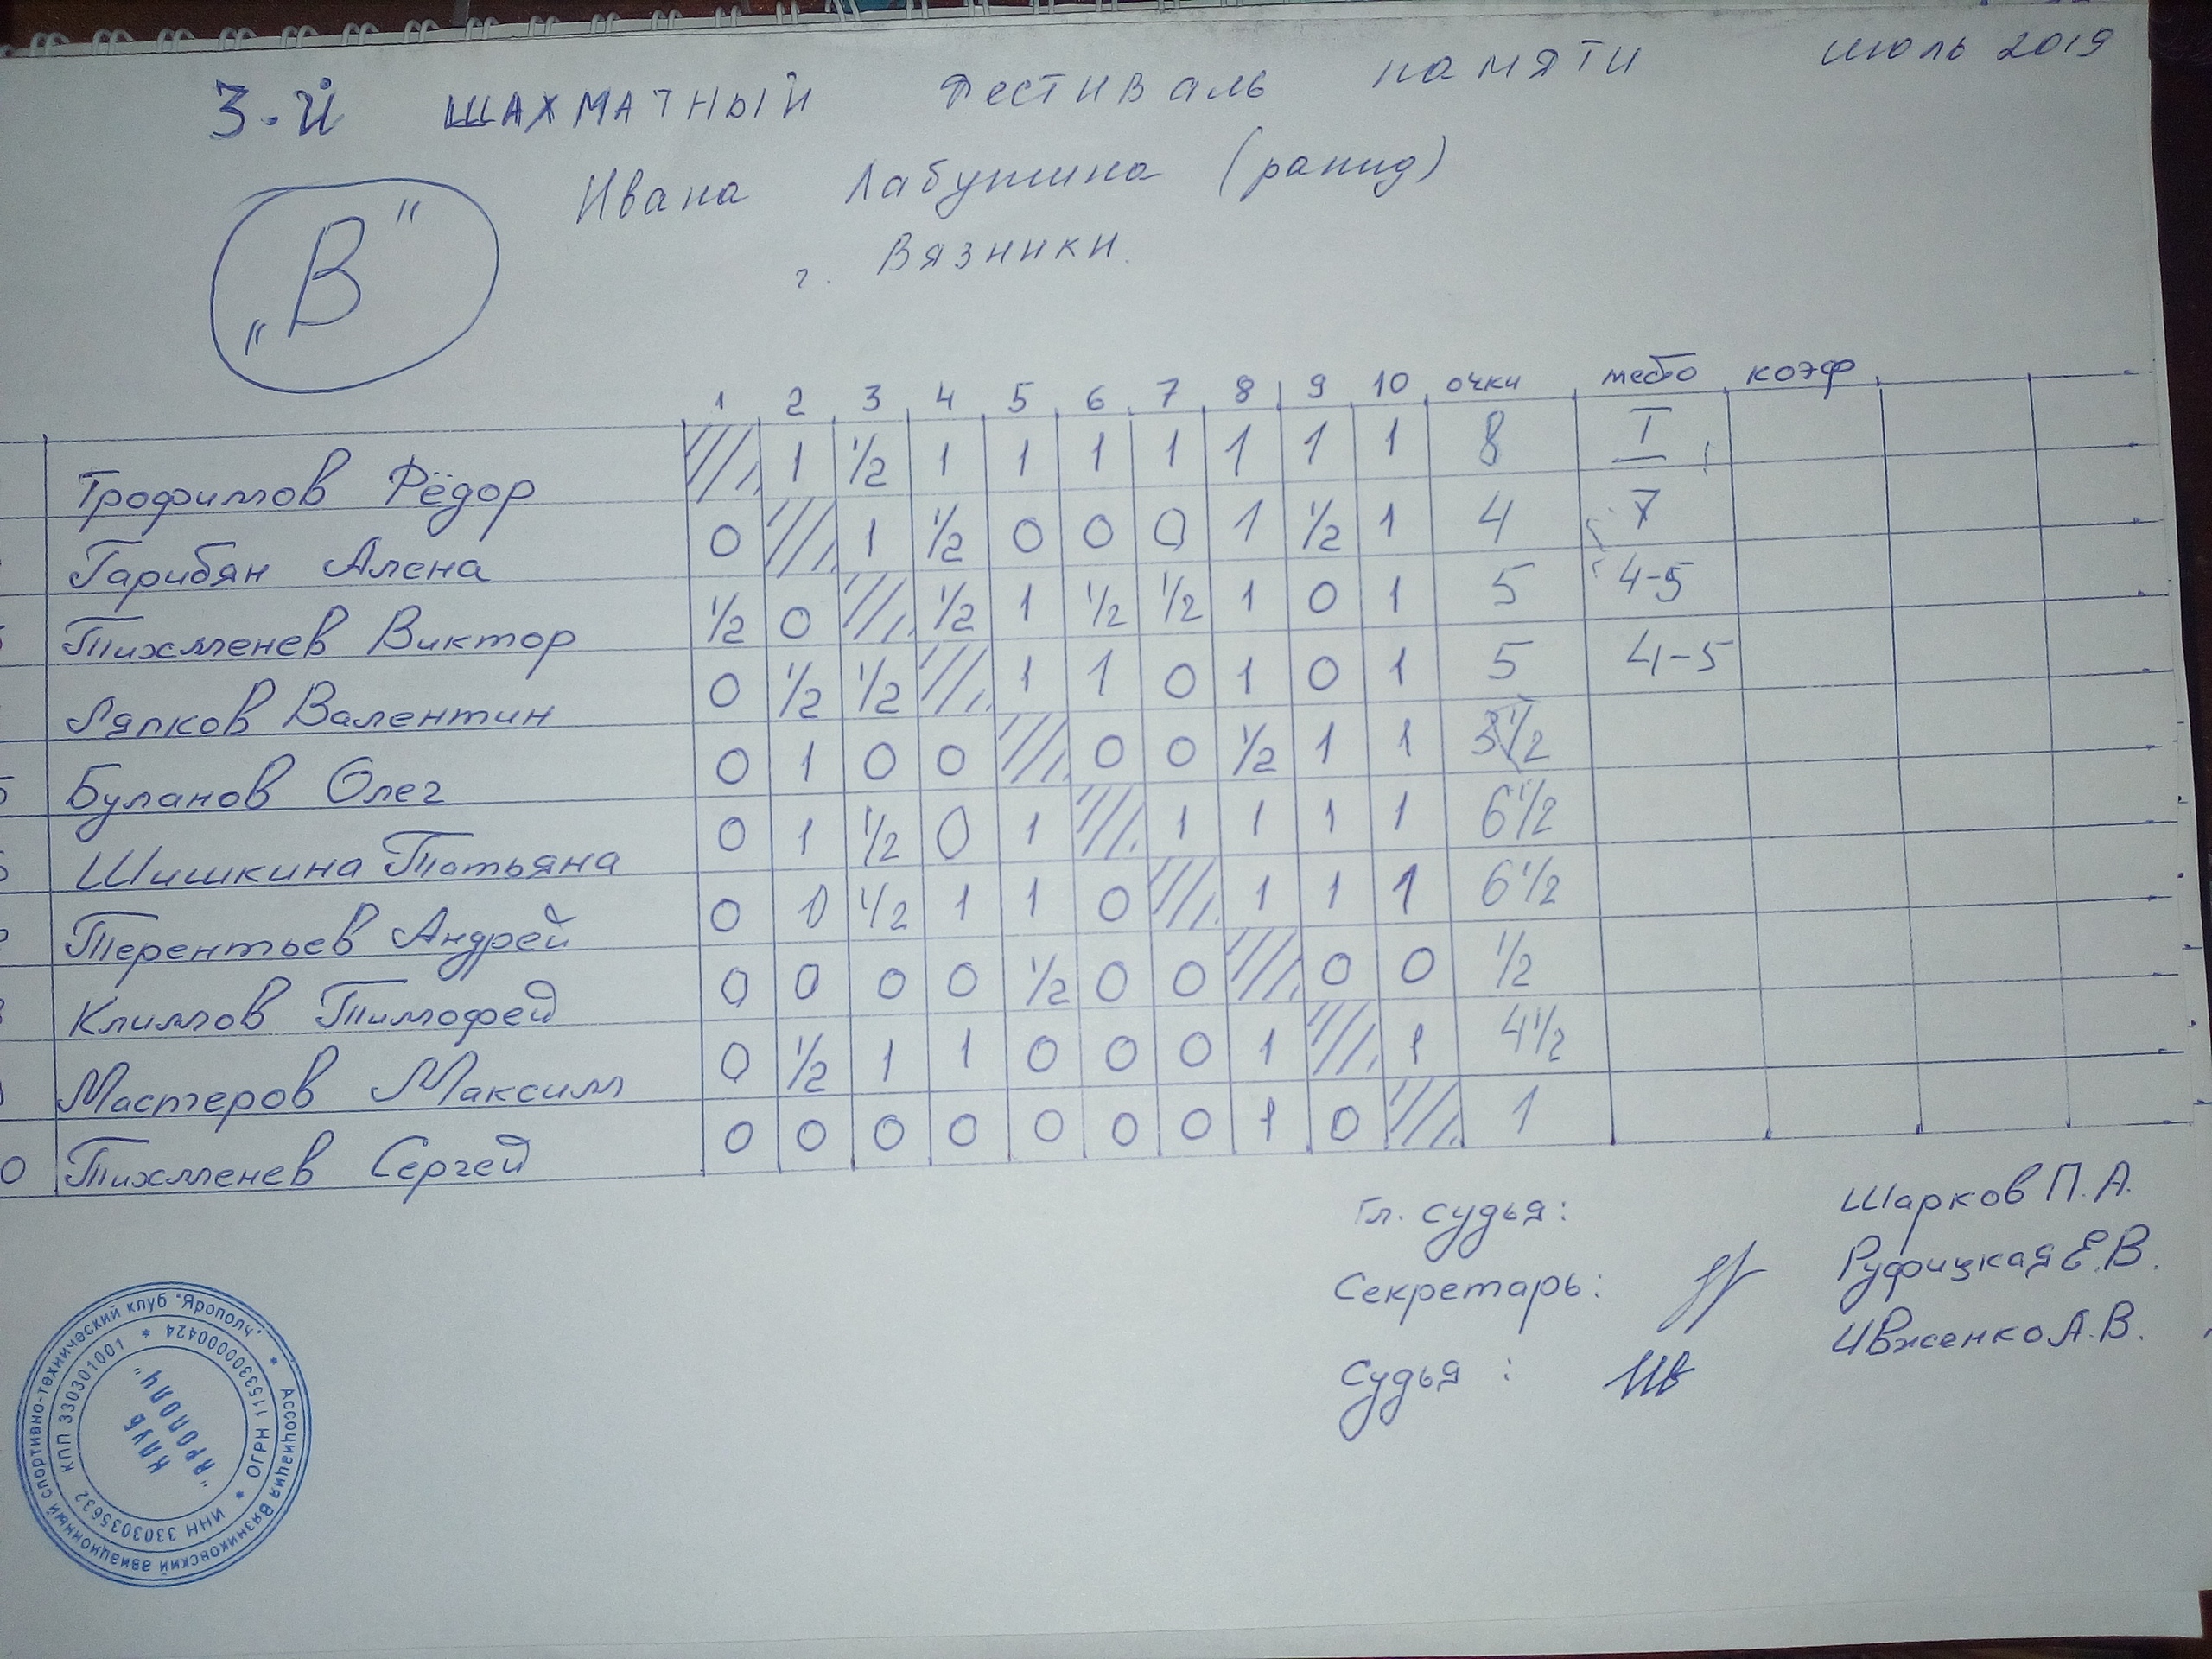 3-й шахматный фестиваль памяти июль 2019
Ивана Лабутина (рапид)
г. Вязники.
„В“
1 2 3 4 5 6 7 8 9 10 очки место коэф
Трофимов Фёдор 1 1/2 1 1 1 1 1 1 1 8 I
Гарибян Алена 0 1 1/2 0 0 0 1 1/2 1 4 7
Тихменев Виктор 1/2 0 1/2 1 1/2 1/2 1 0 1 5 4-5
Ляпков Валентин 0 1/2 1/2 1 1 0 1 0 1 5 4-5
5 Буланов Олег 0 1 0 0 0 0 1/2 1 1 3 1/2
6 Шишкина Татьяна 0 1 1/2 0 1 1 1 1 1 6 1/2
Терентьев Андрей 0 1/2 1 1 0 1 1 1 6 1/2
Климов Тимофей 0 0 0 0 1/2 0 0 0 0 1/2
Мастеров Максим 0 1/2 1 1 0 0 0 1 1 4 1/2
0 Тихменев Сергей 0 0 0 0 0 0 0 1 0 1
Гл. судья: Шарков П.А.
Секретарь: Руфицкая Е.В.
Судья: Ивженко А.В.
Ассоциация Вязниковский авиационный спортивно-технический клуб "Ярополч"
КПП 330301001 * ИНН 3303035632 * ОГРН 1153300000424 *
КЛУБ
"ЯРОПОЛЧ"